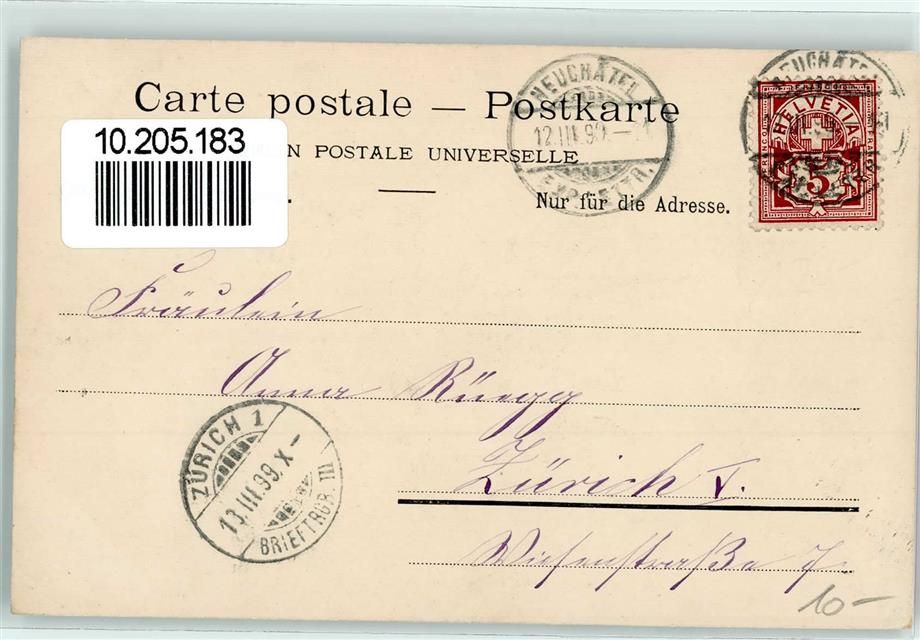 Carte postale — Postkarte
10.205.183
N POSTALE UNIVERSELLE
Nur für die Adresse.
NEUCHÂTEL
12.III.99.–
EXP. LETTR.
NEUCHÂTEL
HELVETIA
FRANCO
5
Fräulein
Anna Rüegg
Zürich I.
Wiesenstraße 7
ZÜRICH 1
13.III.99.X–
BRIEFTRGR. III
10–